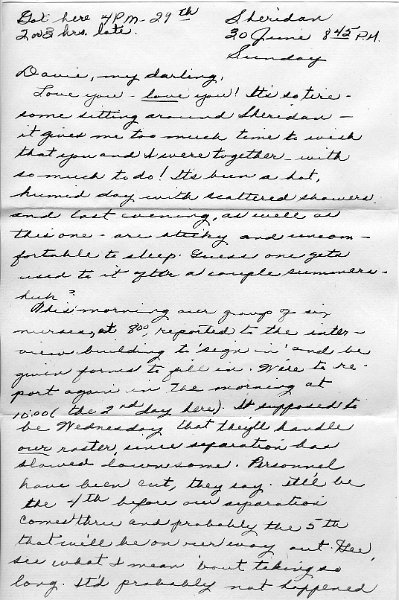 Got here 4 PM - 29th
2 or 3 hrs. late.
Sheridan
30 June 8 45 P.M.
Sunday
Davie, my darling,
Love you - love you! It's so tire-
some sitting around Sheridan -
it gives me too much time to wish
that you and I were together - with
so much to do! It's been a hot,
humid day with scattered showers
and last evening, as well as
this one - are sticky and uncom-
fortable to sleep. Guess one gets
used to it after a couple summers -
huh?
This morning our group of six
nurses, at 8 00, reported to the inter-
view building to 'sign in' and be
given forms to fill in. We're to re-
port again in the morning at
10:00 (the 2nd day here). It supposed to
be Wednesday that they'll handle
our roster, since separation has
slowed down some. Personnel
have been cut, they say. It'll be
the 4th before our separation
comes thru and probably the 5th
that we'll be on our way out. Gee,
see what I mean 'bout taking so
long. It'd probably not happened